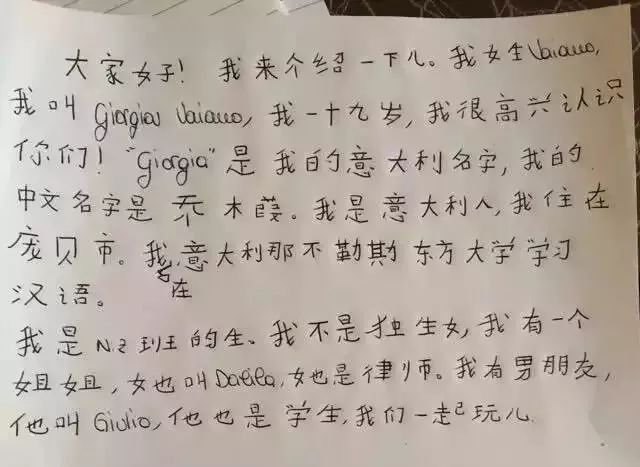 大家好！我来介绍一下儿。我女生Vaiano,
我叫 Giorgia Vaiano, 我一十九岁, 我很高兴认识
你们！"Giorgia"是我的意大利名字, 我的
中文名字是乔木葭。我是意大利人, 我住在
庞贝市。我在意大利那不勒斯东方大学学习
汉语。
我是 N.2 班的生。我不是独生女, 我有一个
姐姐, 她叫 Dalila, 她也是律师。我有男朋友,
他叫 Giulio, 他也是学生, 我们一起玩儿